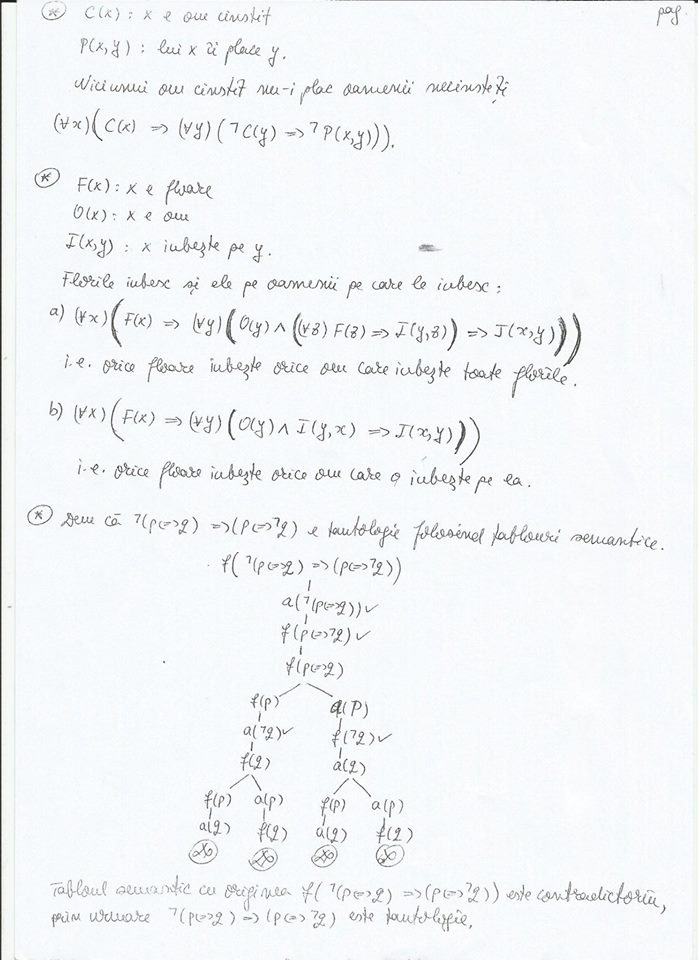 pag.
* C(x) : x e om cinstit
P(x,y) : lui x îi place y.
Niciunui om cinstit nu-i plac oamenii necinstiți
(∀x)(C(x) => (∀y)(¬C(y) => ¬P(x,y))).
* F(x) : x e floare
O(x) : x e om
I(x,y) : x iubește pe y.
Florile iubesc și ele pe oamenii pe care le iubesc :
a) (∀x)(F(x) => (∀y)(O(y) ∧ ((∀z) F(z) => I(y,z)) => I(x,y)))
i.e. orice floare iubește orice om care iubește toate florile.
b) (∀x)(F(x) => (∀y)(O(y) ∧ I(y,x) => I(x,y)))
i.e. orice floare iubește orice om care o iubește pe ea.
* Dem că ¬(p<=>q) => (p<=>¬q) e tautologie folosind tablouri semantice.
f(¬(p<=>q) => (p<=>¬q))
a(¬(p<=>q)) ✓
f(p<=>¬q) ✓
f(p<=>q)
f(p) a(p)
a(¬q) ✓ f(¬q) ✓
f(q) a(q)
f(p) a(p) f(p) a(p)
a(q) f(q) a(q) f(q)
Tabloul semantic cu originea f(¬(p<=>q) => (p<=>¬q)) este contradictoriu,
prin urmare ¬(p<=>q) => (p<=>¬q) este tautologie.